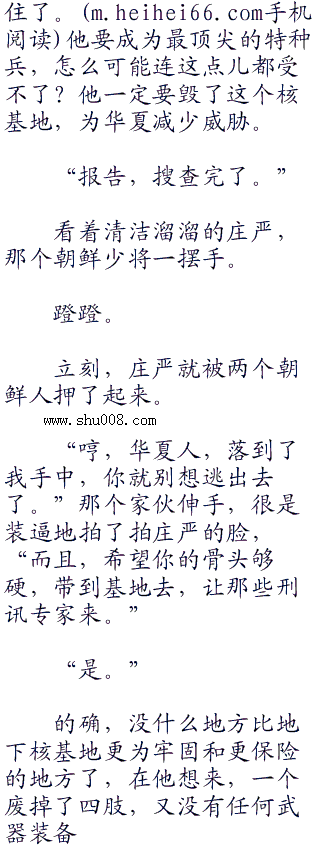 住了。(m.heihei66.com手机
阅读)他要成为最顶尖的特种
兵，怎么可能连这点儿都受
不了？他一定要毁了这个核
基地，为华夏减少威胁。
“报告，搜查完了。”
看着清洁溜溜的庄严，
那个朝鲜少将一摆手。
蹬蹬。
立刻，庄严就被两个朝
鲜人押了起来。
www.shu008.com
“哼，华夏人，落到了
我手中，你就别想逃出去
了。”那个家伙伸手，很是
装逼地拍了拍庄严的脸，
“而且，希望你的骨头够
硬，带到基地去，让那些刑
讯专家来。”
“是。”
的确，没什么地方比地
下核基地更为牢固和更保险
的地方了，在他想来，一个
废掉了四肢，又没有任何武
器装备